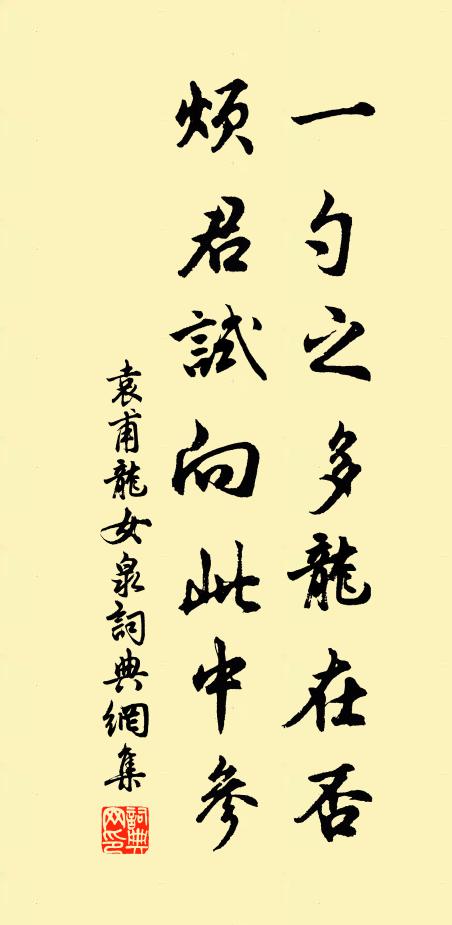 一勺之多龍在否
煩君試向此中參
袁甫龍女泉詞典網集
詞典網印